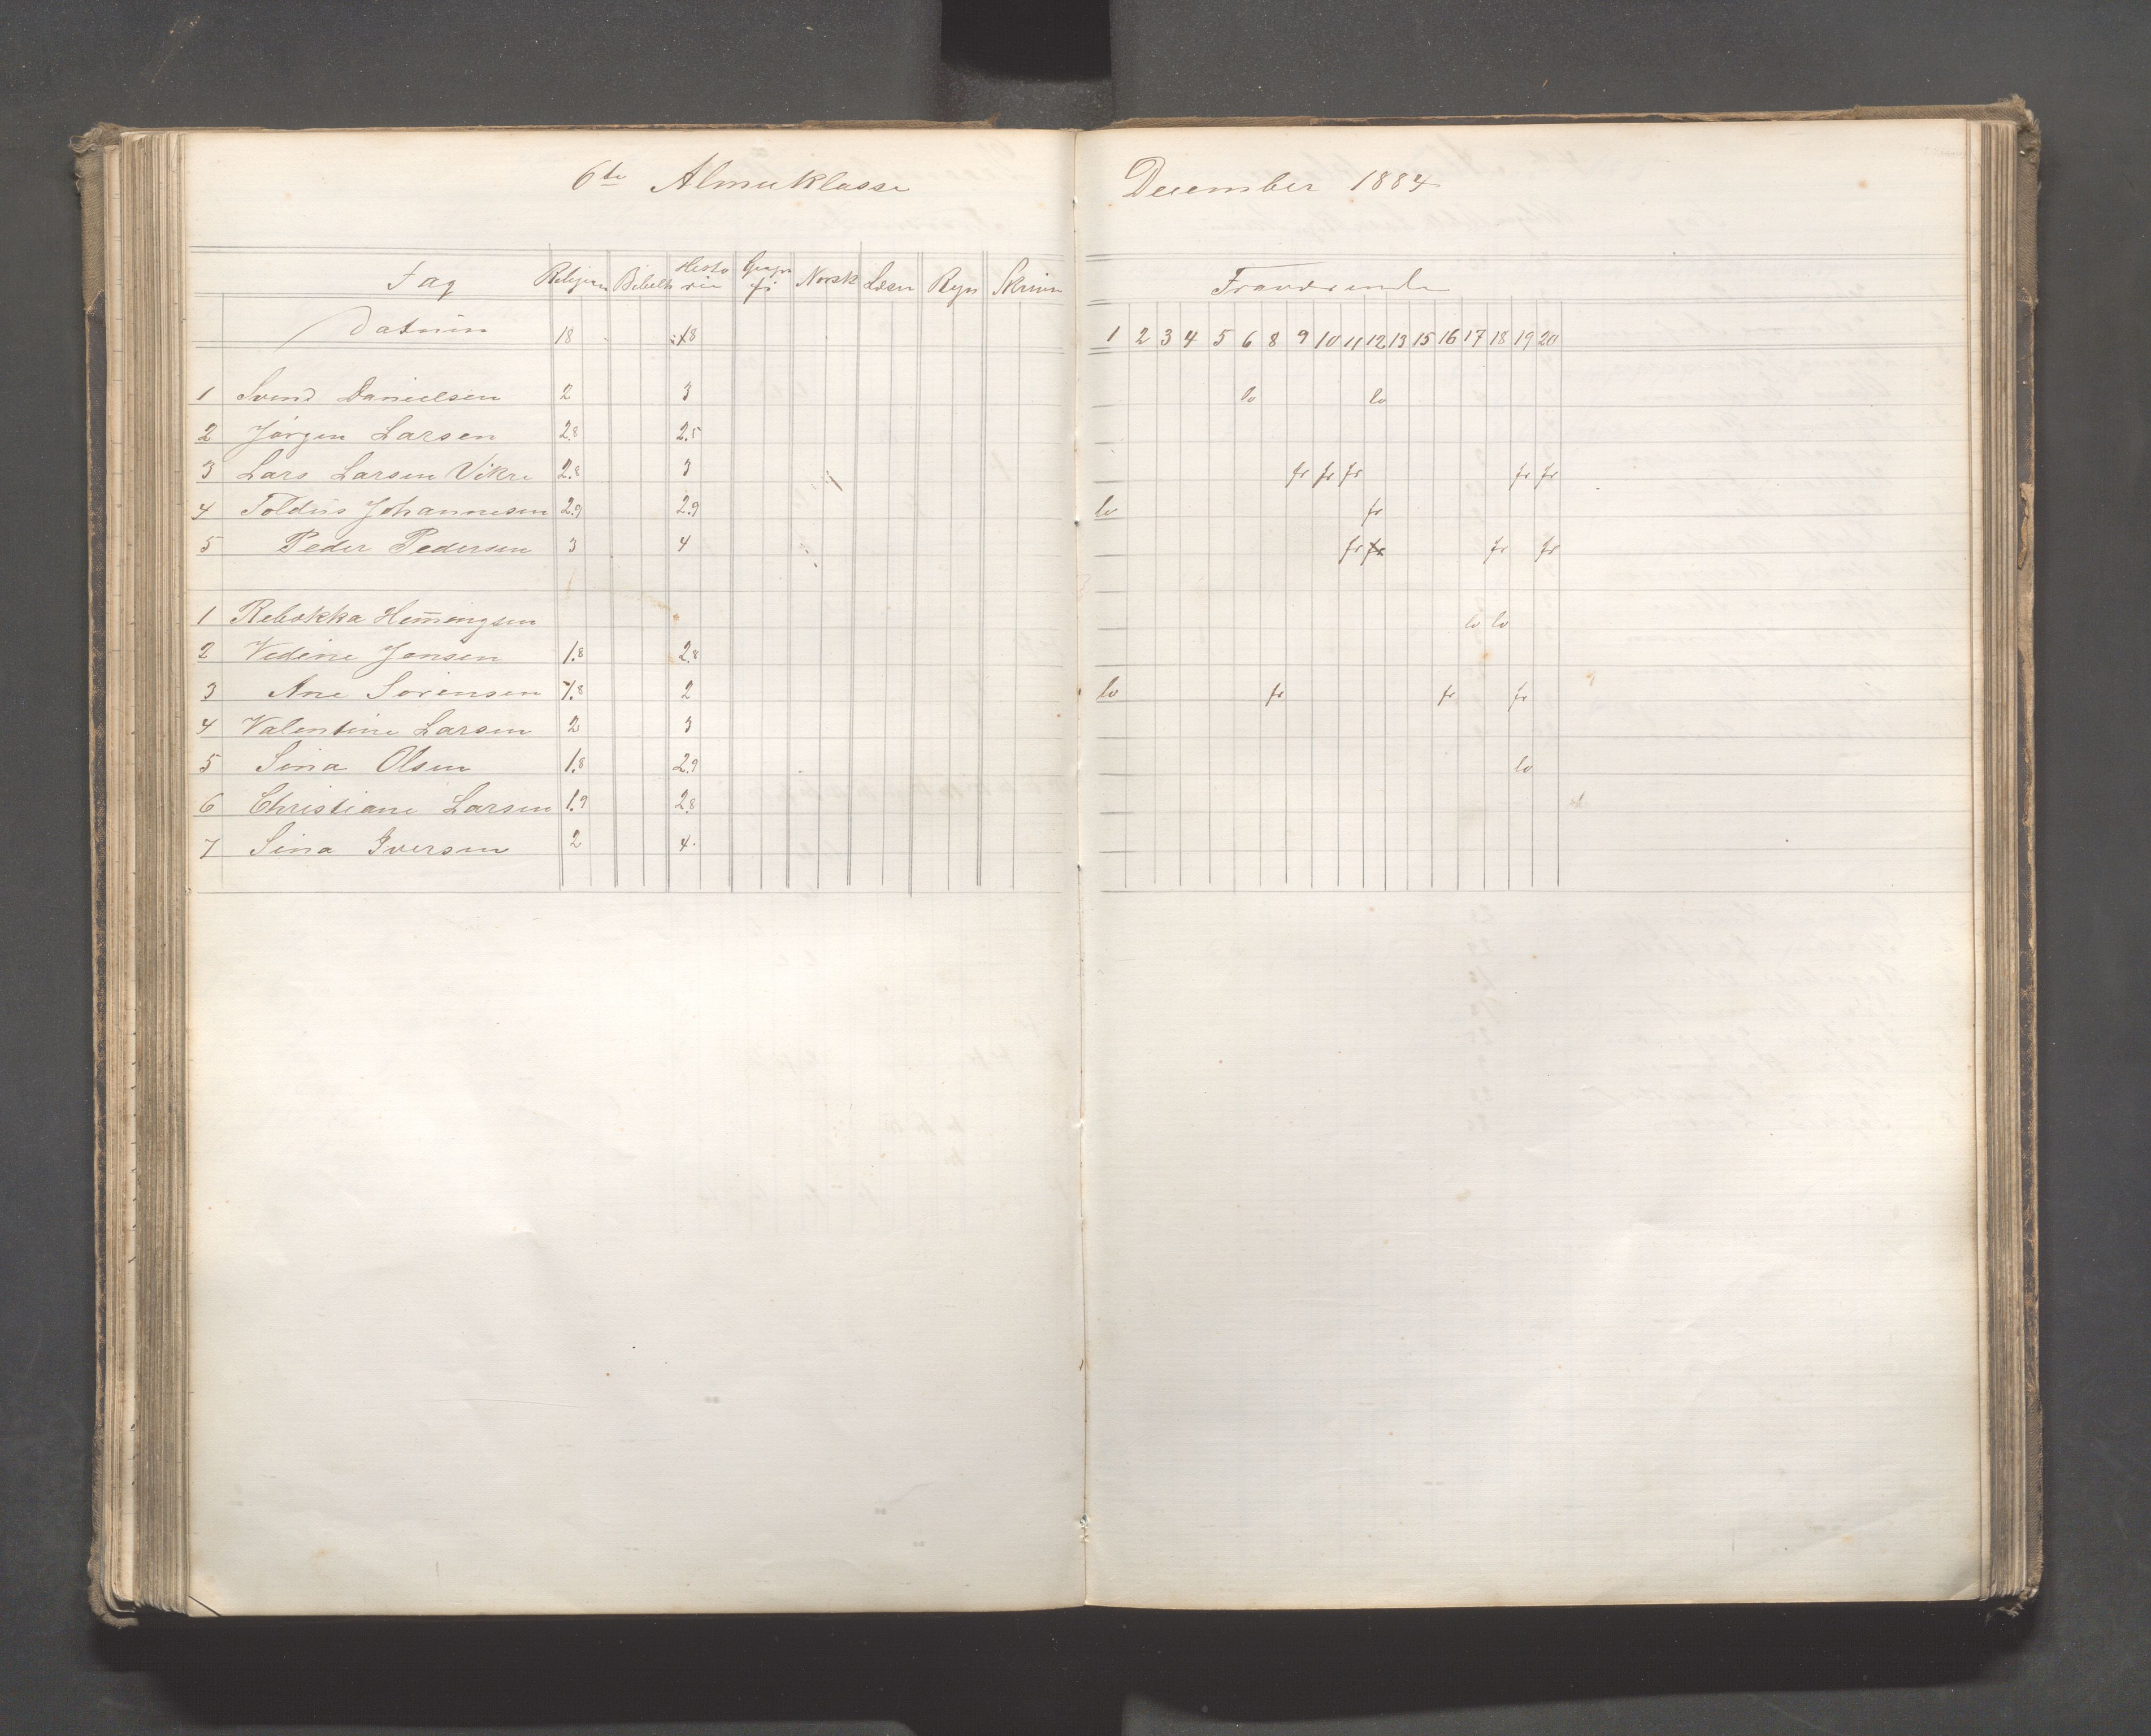 6te Almueklasse December 1884
Fag Religion Bibelh Historie Geografi Norsk Læsn Regn Skrivn Fraværende
Datum 18 18 1 2 3 4 5 6 8 9 10 11 12 13 15 16 17 18 19 20
1 Svend Danielsen 2 3 lo lo
2 Jörgen Larsen 2.8 2.5
3 Lars Larsen Vikre 2.8 3 fr fr fr fr fr
4 Toldiis Johannesen 2.9 2.9 lo fr
5 Peder Pedersen 3 4 fr fr fr fr
1 Rebekka Hem̄ingsen lo lo
2 Vedine Jensen 1.8 2.8
3 Ane Sörensen 1.8 2 lo fr fr fr
4 Valentine Larsen 2 3
5 Sina Olsen 1.8 2.9 lo
6 Christiane Larsen 1.9 2.8
7 Sina Iversen 2 4.